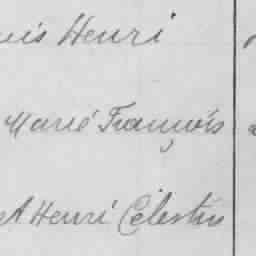 Henri
Marie François
Henri Célestin